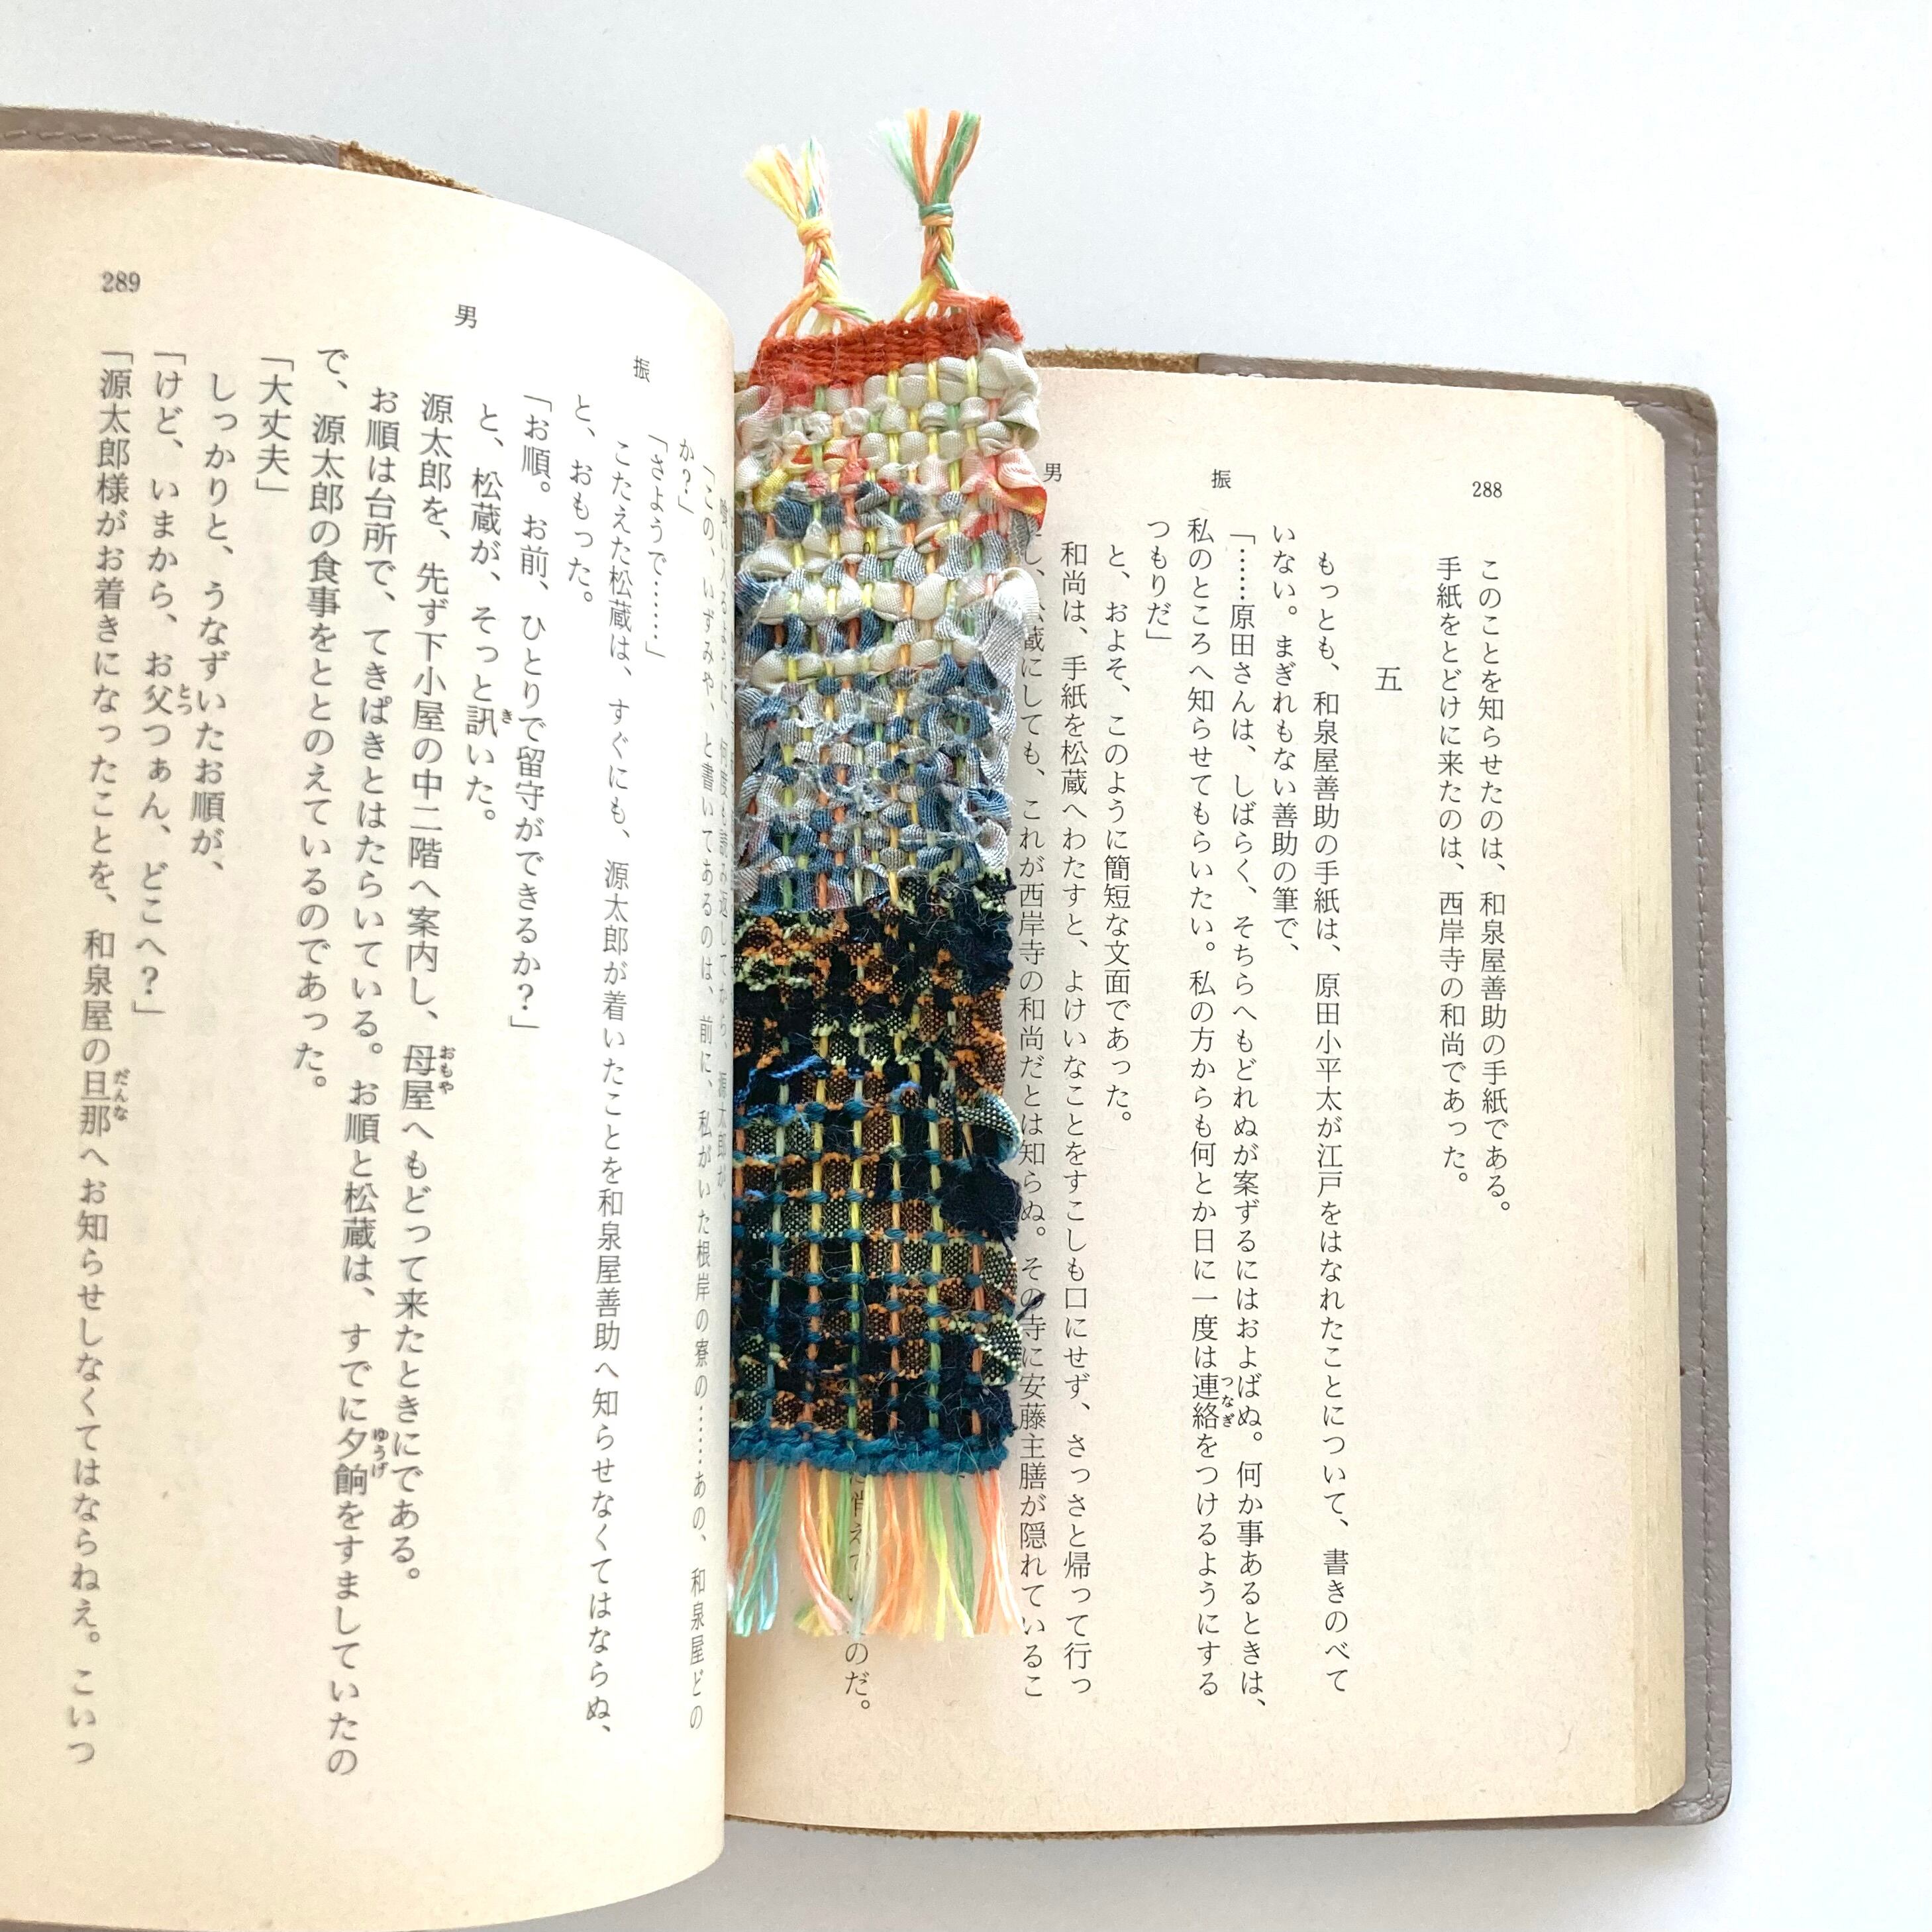 288
男振
このことを知らせたのは、和泉屋善助の手紙である。
手紙をとどけに来たのは、西岸寺の和尚であった。
五
もっとも、和泉屋善助の手紙は、原田小平太が江戸をはなれたことについて、書きのべて
いない。まぎれもない善助の筆で、
「……原田さんは、しばらく、そちらへもどれぬが案ずるにはおよばぬ。何か事あるときは、
私のところへ知らせてもらいたい。私の方からも何とか日に一度は連絡をつけるようにする
つなぎ
つもりだ」
と、およそ、このように簡短な文面であった。
和尚は、手紙を松蔵へわたすと、よけいなことをすこしも口にせず、さっさと帰って行っ
し、松蔵にしても、これが西岸寺の和尚だとは知らぬ。その寺に安藤主膳が隠れているこ
のだ。
289
男振
何度も読み返してから、源太郎が、
「この、いずみや、と書いてあるのは、前に、私がいた根岸の寮の……あの、和泉屋どの
か？」
「さようで……」
こたえた松蔵は、すぐにも、源太郎が着いたことを和泉屋善助へ知らせなくてはならぬ、
と、おもった。
「お順。お前、ひとりで留守ができるか？」
と、松蔵が、そっと訊いた。
き
源太郎を、先ず下小屋の中二階へ案内し、母屋へもどって来たときにである。
おもや
お順は台所で、てきぱきとはたらいている。お順と松蔵は、すでに夕餉をすましていたの
ゆうげ
で、源太郎の食事をととのえているのであった。
「大丈夫」
しっかりと、うなずいたお順が、
「けど、いまから、お父つぁん、どこへ？」
とっ
「源太郎様がお着きになったことを、和泉屋の旦那へお知らせしなくてはならねえ。こいつ
だんな